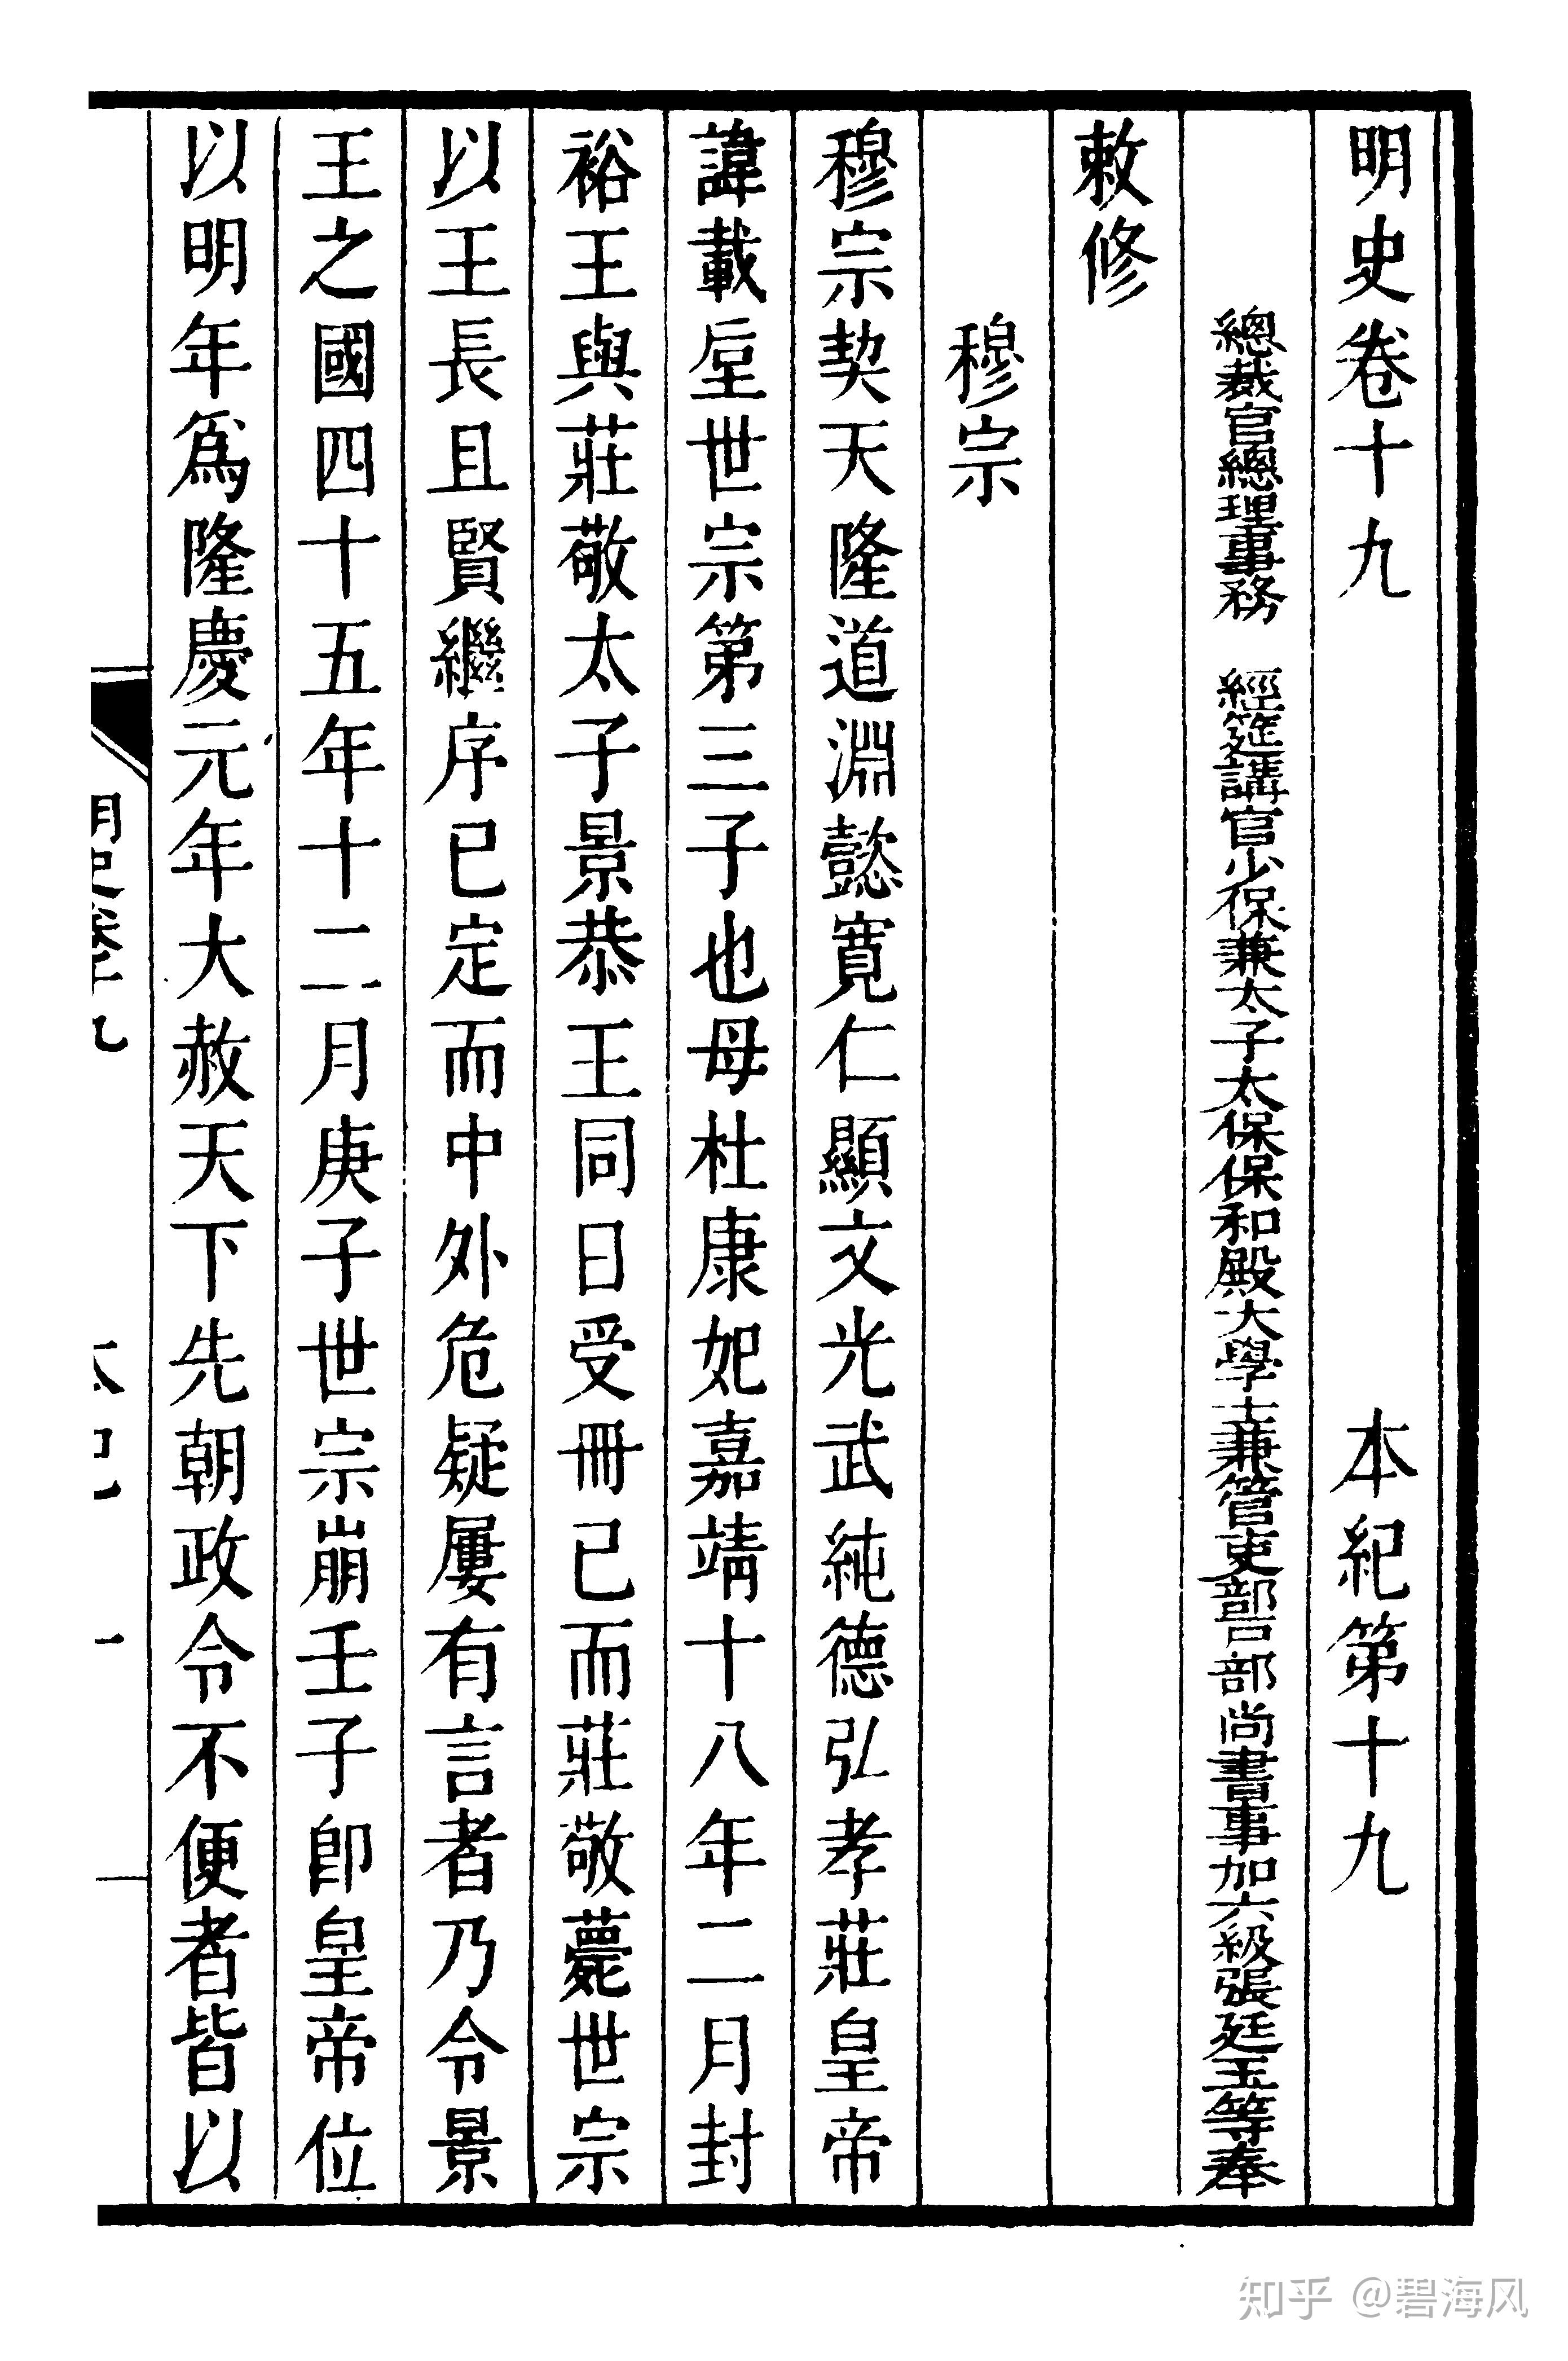 明史卷十九 本紀第十九
總裁官總理事務 經筵講官少保兼太子太保保和殿大學士兼管吏部戶部尚書事加六級張廷玉等奉
敕修
穆宗
穆宗契天隆道淵懿寬仁顯文光武純德弘孝莊皇帝
諱載垕世宗第三子也母杜康妃嘉靖十八年二月封
裕王與莊敬太子景恭王同日受冊已而莊敬薨世宗
以王長且賢繼序已定而中外危疑屢有言者乃令景
王之國四十五年十二月庚子世宗崩壬子卽皇帝位
以明年爲隆慶元年大赦天下先朝政令不便者皆以
明史卷十九 本紀 一
知乎 @碧海风